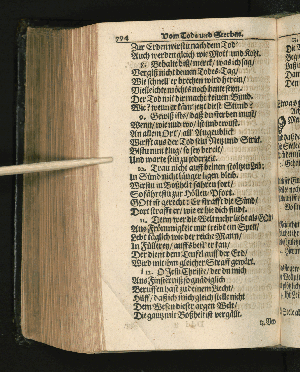 794 Vom Tode und Sterben.
Zur Erden wirst du nach dem Tod/
Auch werden gleich wie Mist und Koht.
8. Behalte diß/ merck/ was ich sag/
Vergiß nicht deinen Todes-Tag/
Wie schnell er brechen wird herein/
Vielleicht möcht es noch heute seyn.
Der Tod mit dir machet keinen Bund.
Wie? wenn er käm jetzt diese Stund?
9. Gewiß ists/ daß du sterben must/
Wenn/ wie und wo/ ist unbewust.
An allem Ort/ all Augenblick
Wirfft aus der Tod sein Netz und Strick.
Bistu nun klug/ so sey bereit/
Und warte sein zu jederzeit.
10. Trau nicht auff deinen stoltzen Leib:
In Sünd nicht länger liegen bleib.
Werstu in Boßheit fahren fort/
So fährstu zur Höllen-Pfort.
GOtt ist gerecht: Er strafft die Sünd/
Dort strafft er/ wie er hie dich findt.
11. Denn wer die Welt mehr liebt als GOtt
Aus Frömmigkeit nur treibt ein Spott/
Lebt täglich wie der reiche Mann/
In Füllerey/ auffs best' er kan/
Der dient dem Teufel auff der Erd/
Wird mit ihm gleicher Straff gewärt.
12. O JEsu Christe/ der du mich
Aus Finsternis so gnädiglich
Beruffen hast zu deinem Liecht/
Hilff/ daß ich mich gleich stelle nicht
Dem Wesen dieser argen Welt/
Die gantz mit Boßheit ist vergällt.